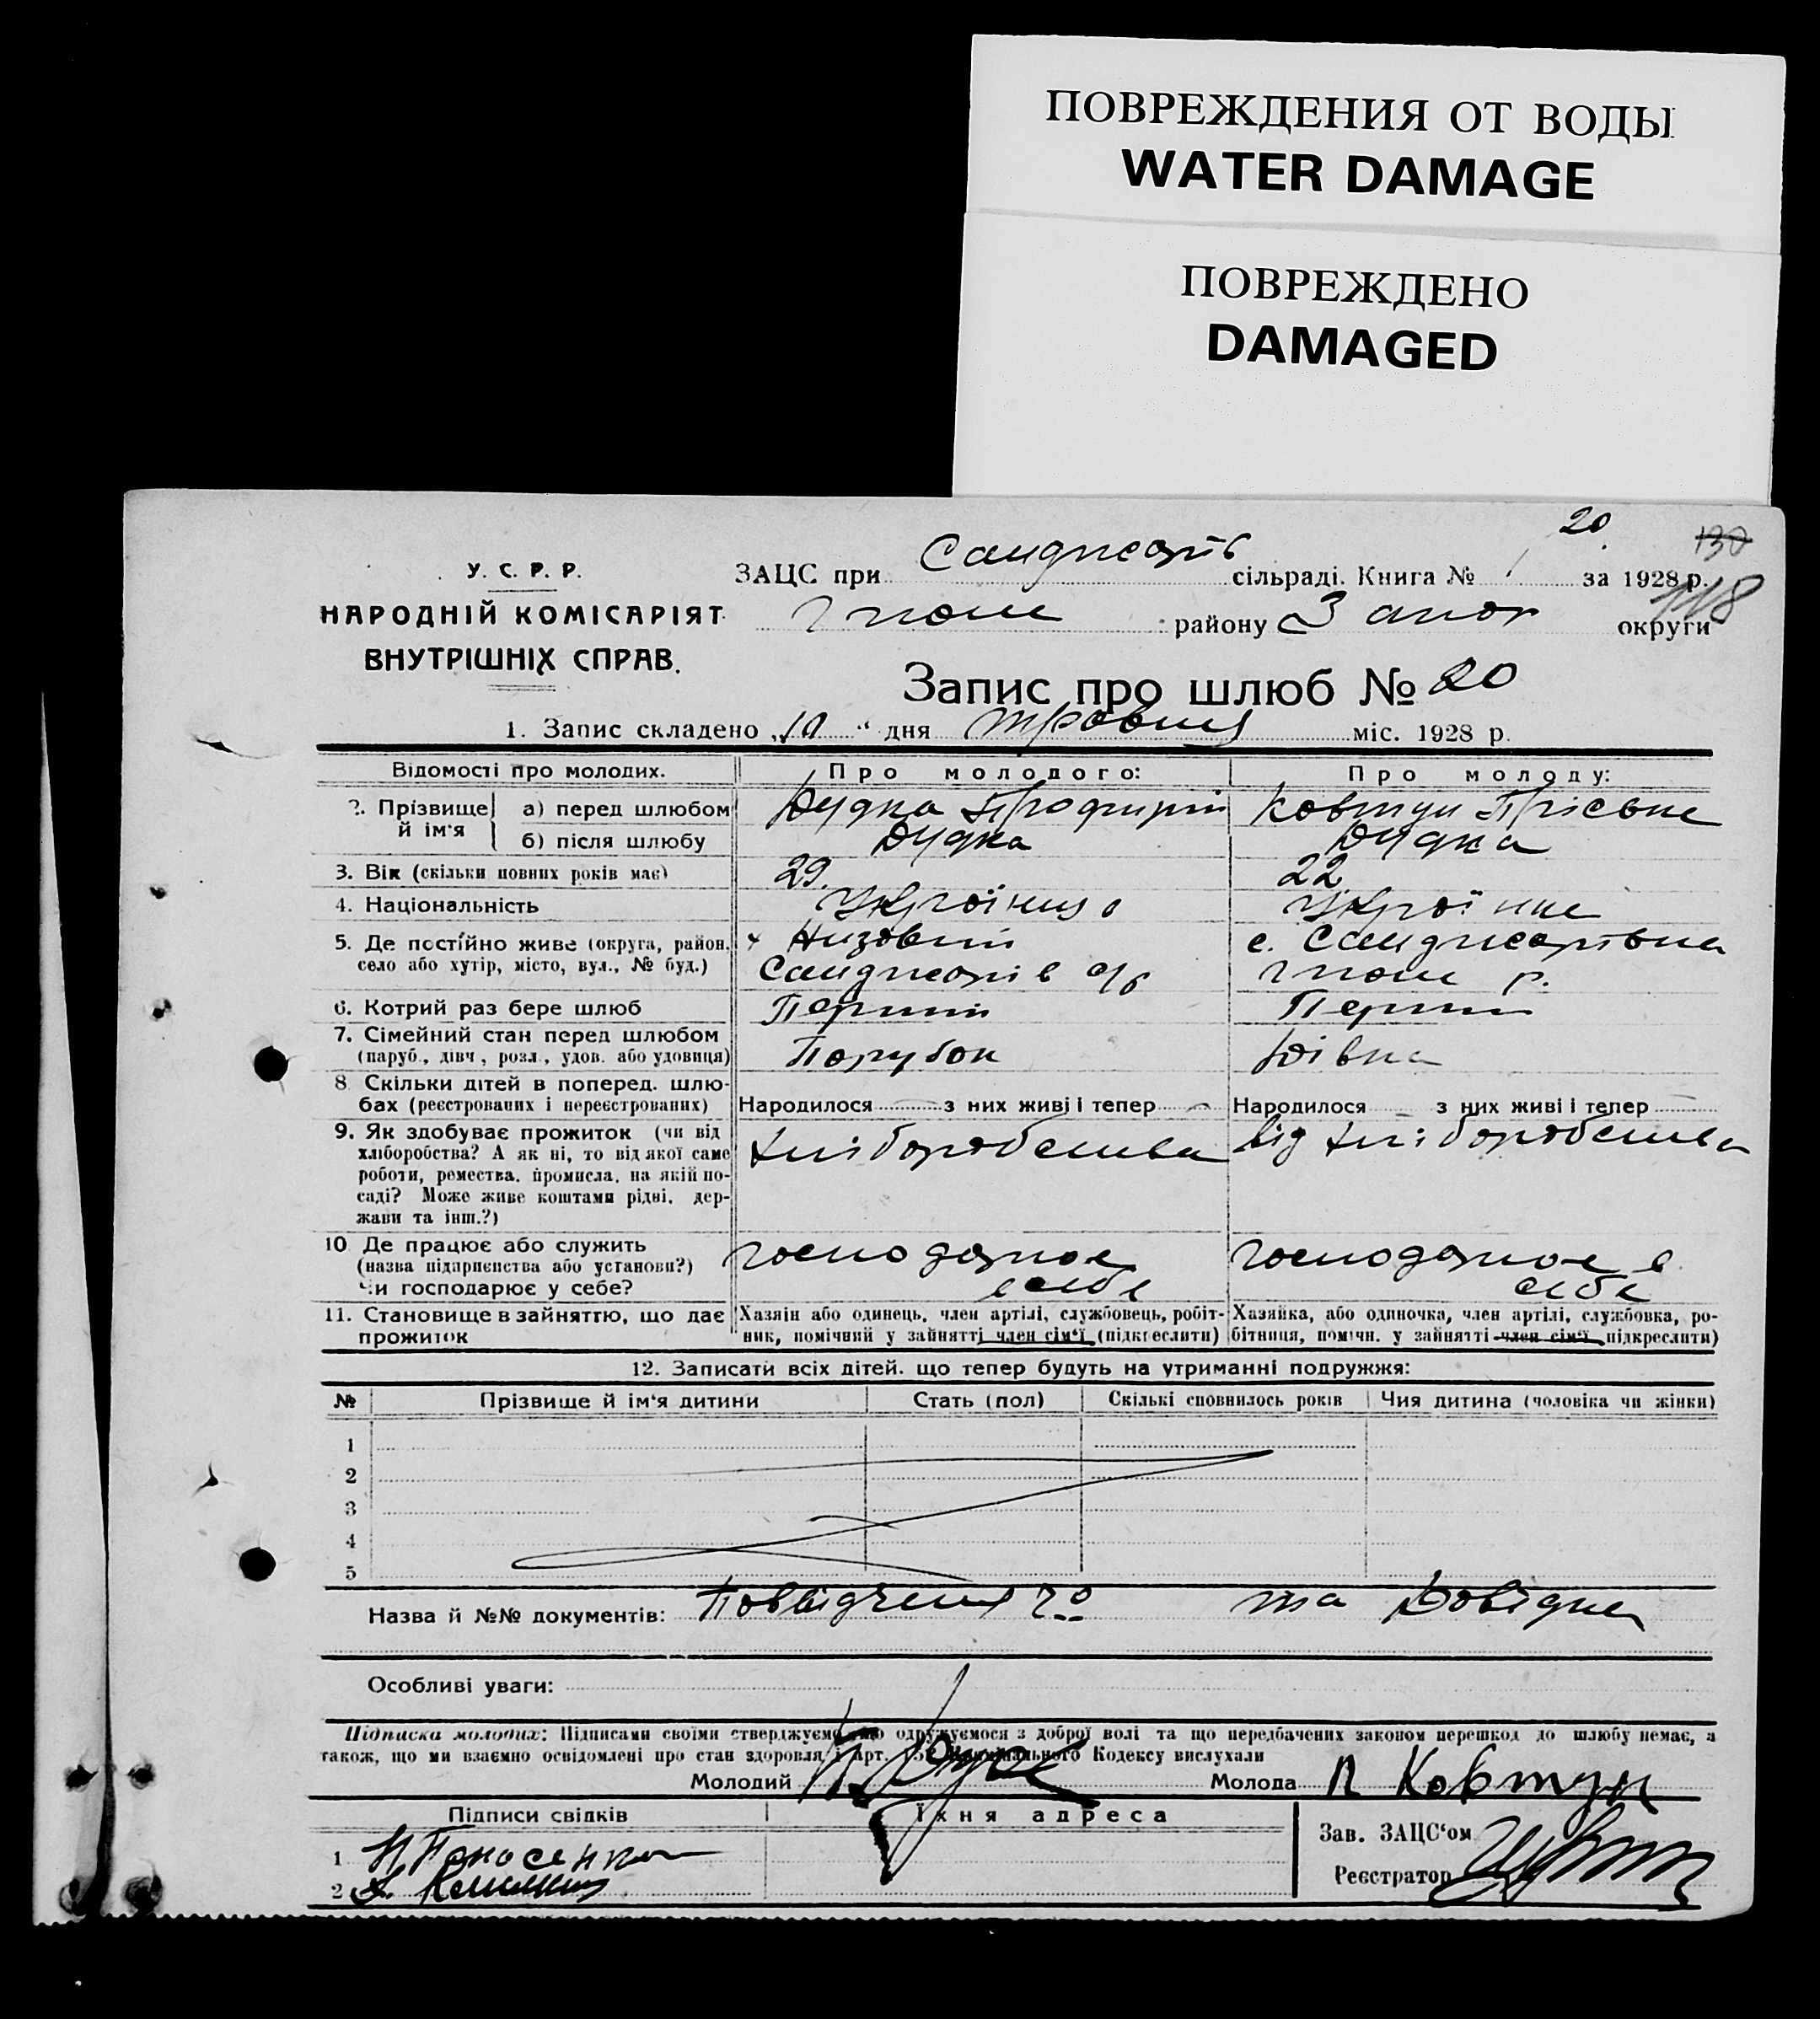 ПОВРЕЖДЕНИЯ ОТ ВОДЫ
WATER DAMAGE
ПОВРЕЖДЕНО
DAMAGED
20
130
118
У. С. Р. Р.
НАРОДНІЙ КОМІСАРІЯТ
ВНУТРІШНІХ СПРАВ.
ЗАЦС при сільраді. Книга № 1 за 1928 р.
району Запор округи
Запис про шлюб № 20
1. Запис складено „10“ дня травня міс. 1928 р.
Відомості про молодих. Про молодого: Про молоду:
2. Прізвище й ім'я а) перед шлюбом Дудка Ковтун
б) після шлюбу Дудка Дудка
3. Вік (скільки повних років має) 29. 22
4. Національність Україн
5. Де постійно живе (округа, район, село або хутір, місто, вул., № буд.) х Низовий с.
6. Котрий раз бере шлюб Перший Перший
7. Сімейний стан перед шлюбом (паруб., дівч., розл., удов. або удовиця) Парубок Дівка
8. Скільки дітей в поперед. шлюбах (реєстрованих і нереєстрованих) Народилося — з них живі і тепер — Народилося — з них живі і тепер
9. Як здобуває прожиток (чи від хліборобства? А як ні, то від якої саме роботи, ремества, промисла, на якій посаді? Може живе коштами рідні, держави та інш.?) Хліборобства від хліборобства
10. Де працює або служить (назва підприємства або установи?) Чи господарює у себе? господарює в себе господарює в себе
11. Становище в зайняттю, що дає прожиток Хазяін або одинець, член артілі, службовець, робітник, помічний у зайнятті член сім'ї (підкреслити) Хазяйка, або одиночка, член артілі, службовка, робітниця, помічн. у зайнятті член сім'ї підкреслити)
12. Записати всіх дітей, що тепер будуть на утриманні подружжя:
№ Прізвище й ім'я дитини Стать (пол) Скількі сповнилось років Чия дитина (чоловіка чи жінки)
1
2
3
4
5
Назва й №№ документів: та Довідка
Особливі уваги:
Підписка молодих: Підписами своїми стверджуємо, що одружуємося з доброї волі та що передбачених законом перешкод до шлюбу немає, а
також, що ми взаємно освідомлені про стан здоровля і арт. Кримінального Кодексу вислухали
Молодий Молода П Ковтун
Підписи свідків Їхня адреса
1 Панасенко
2
Зав. ЗАЦС'ом
Реєстратор